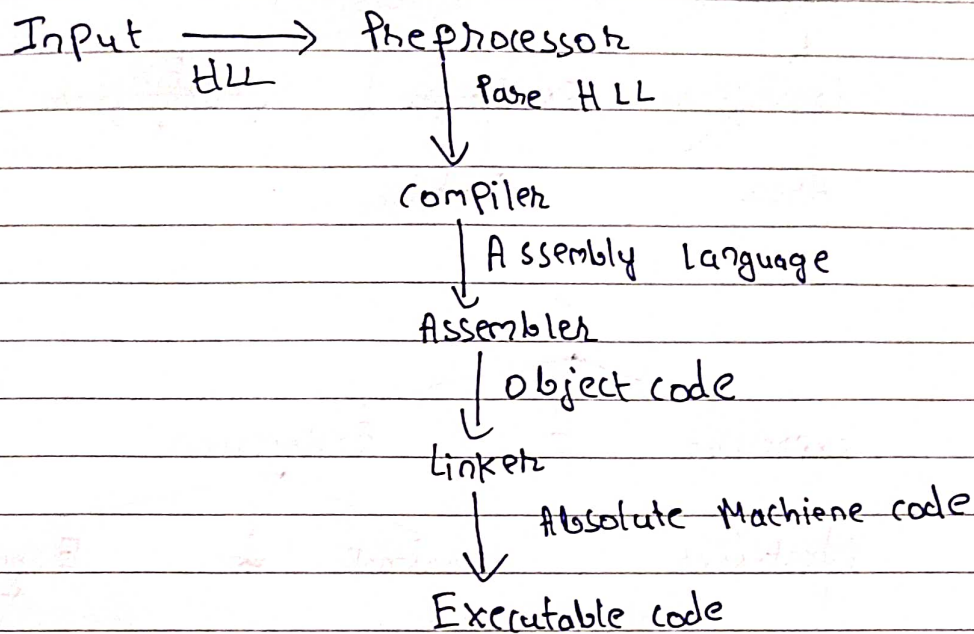 Input → Preprocessor
HLL
Pare HLL
Compiler
Assembly Language
Assembler
Object code
Linker
Absolute Machiene code
Executable code